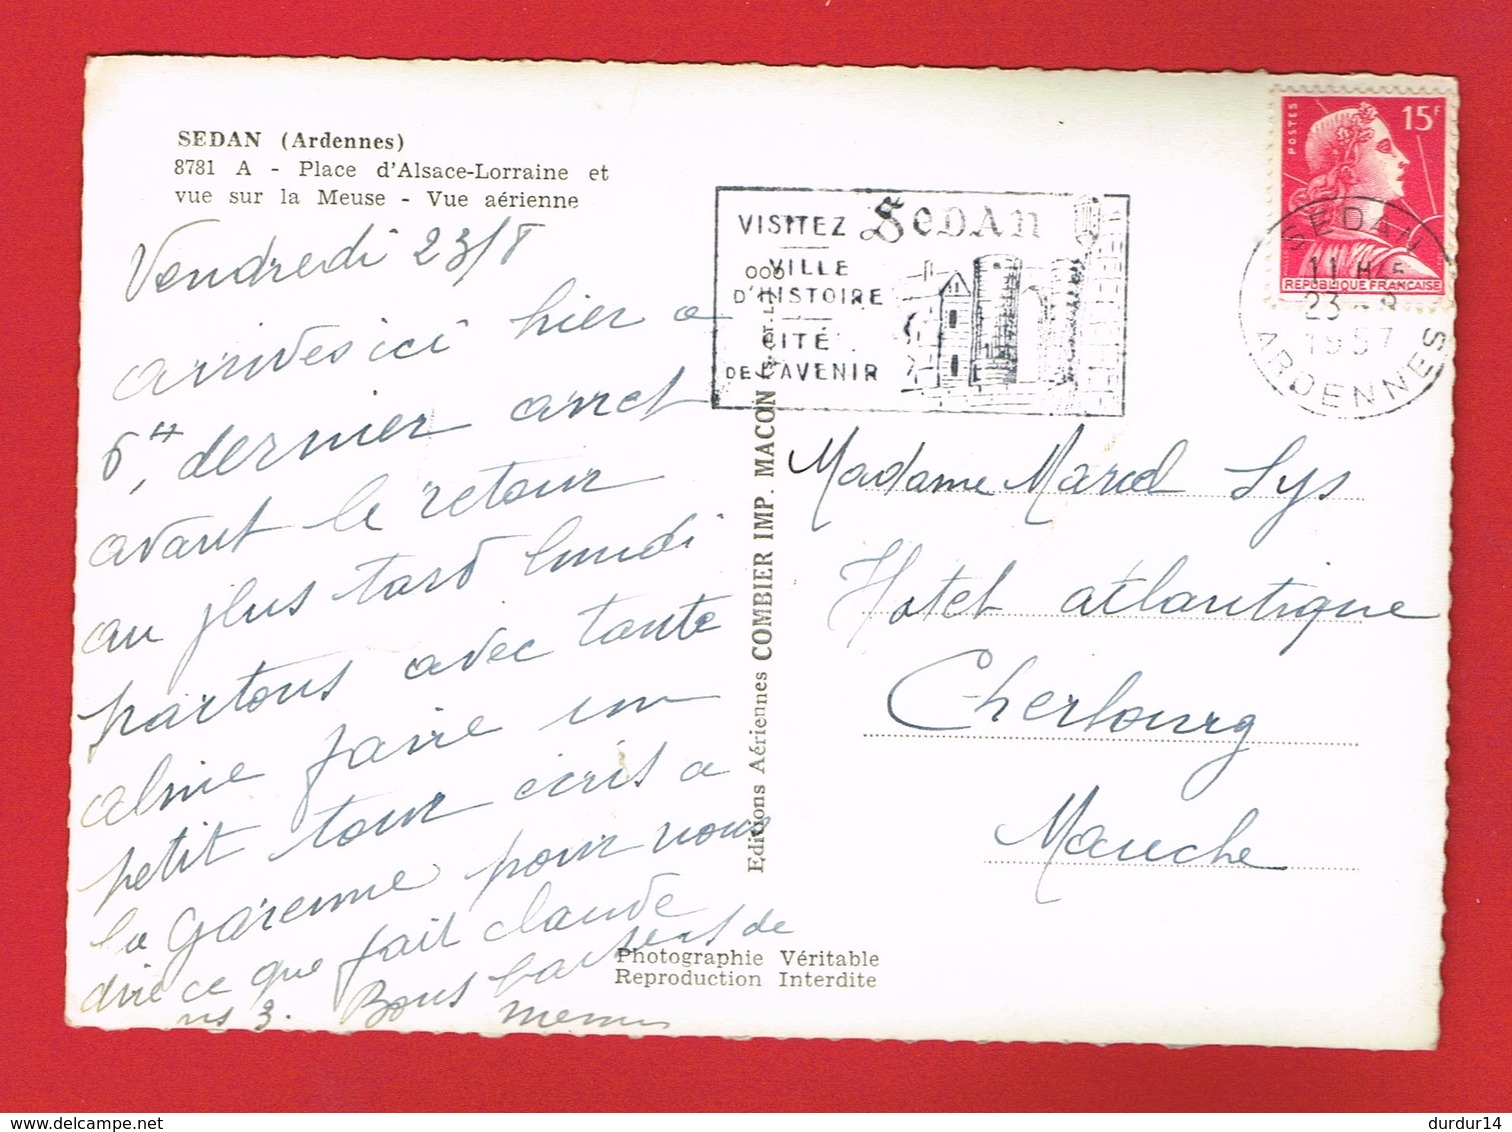 SEDAN (Ardennes)
8781 A - Place d'Alsace-Lorraine et
vue sur la Meuse - Vue aérienne
Vendredi 23/8
arrivés ici hier a
6H, dernier arret
avant le retour
au plus tard lundi
partons avec tante
aline faire un
petit tour écris a
la Garenne pour nous
dire ce que fait claude
ns 3. Bons baisers de
VISITEZ SEDAN
VILLE
D'HISTOIRE
CITÉ
DE L'AVENIR
POSTES
15F
REPUBLIQUE FRANÇAISE
SEDAN
11 H45
23 - 8
1957
ARDENNES
Editions Aériennes COMBIER IMP. MACON
Madame Marcel Lys
Hotel atlantique
Cherbourg
Manche
Photographie Véritable
Reproduction Interdite
delcampe.net
durdur14